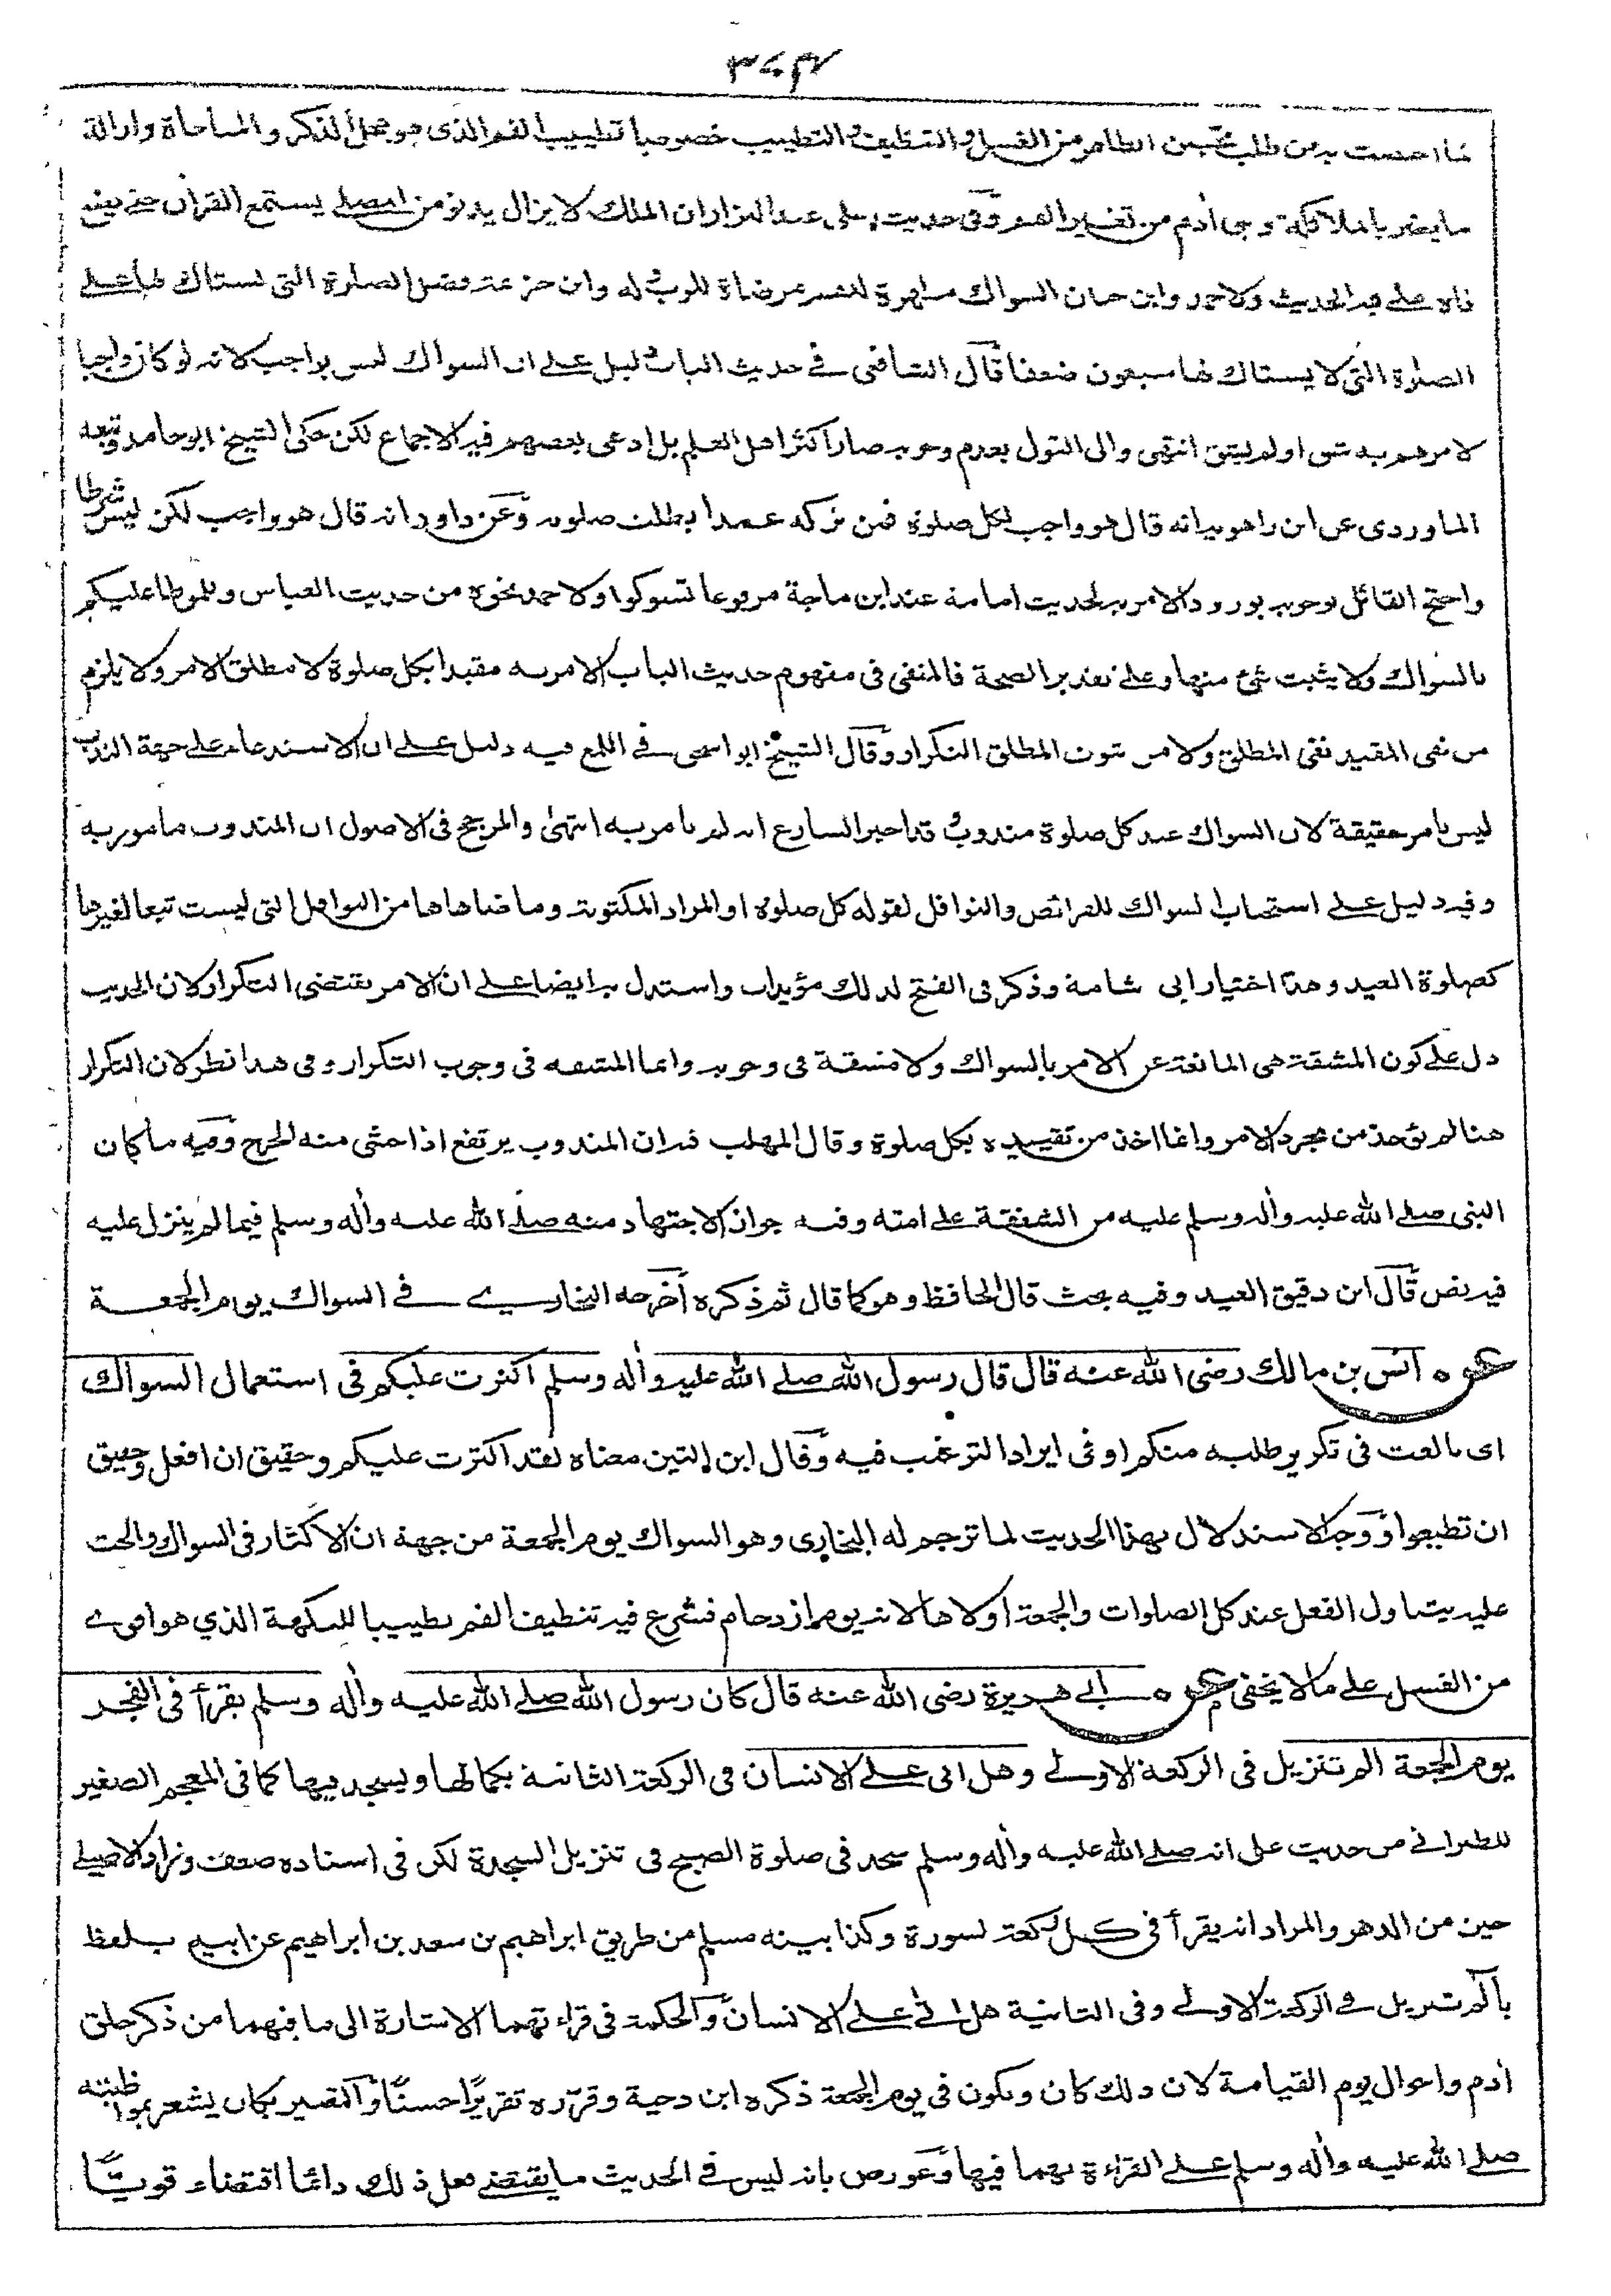 ٣٧٤
لما اختصت به من طلب تحسين الظاهر من الغسل والتنظيف والتطييب خصوصا تطييب الفم الذى هو محل الذكر والمناجاة وازالة
ما يضر بالملائكة وبنى أدم من تغير الفم وفى حديث على عند البزار ان الملك لا يزال يدنو من المصلى يستمع القرأن حتى يضع
فاه على فيه الحديث ولاحمد وابن حبان السواك مطهرة للفم مرضاة للرب وله وابن خزيمة فضل الصلوة التى يستاك لها على
الصلوة التى لا يستاك لها سبعون ضعفا قال الشافعى فى حديث الباب دليل على ان السواك ليس بواجب لانه لو كان واجبا
لامرهم به شق او لم يشق انتهى والى القول بعدم وجوبه صار اكثر اهل العلم بل ادعى بعضهم فيه الاجماع لكن حكى الشيخ ابو حامد وتبعه
الماوردى عن ابن راهويه انه قال هو واجب لكل صلوة فمن تركه عمدا بطلت صلوته وعن داود انه قال هو واجب لكن ليس شرطا
واحتج القائل بوجوبه بورود الامر به لحديث امامة عند ابن ماجة مرفوعا تسوكوا ولاحمد نحوه من حديث العباس وللموطا عليكم
بالسواك ولا يثبت شئ منها وعلى تقدير الصحة فالمنفى فى مفهوم حديث الباب الامر به مقيدا بكل صلوة لا مطلق الامر ولا يلزم
من نفى المقيد نفى المطلق ولا من ثبوت المطلق التكرار وقال الشيخ ابو اسحق فى اللمع فيه دليل على ان الاستدعاء على جهة الندب
ليس بامر حقيقة لان السواك عند كل صلوة مندوب وقد اخبر الشارع انه لم يامر به انتهى والمرجح فى الاصول ان المندوب مامور به
وفيه دليل على استحباب السواك للفرائض والنوافل لقوله كل صلوة او المراد المكتوبة وما ضاهاها من النوافل التى ليست تبعا لغيرها
كصلوة العيد وهذا اختيار ابى شامة وذكر فى الفتح لذلك مؤيدات واستدل به ايضا على ان الامر يقتضى التكرار لان الحديث
دل على كون المشقة هى المانعة عن الامر بالسواك ولا مشقة فى وجوبه وانما المشقة فى وجوب التكرار وفى هذا نظر لان التكرار
هنا لم يؤخذ من مجرد الامر وانما اخذ من تقييده بكل صلوة وقال المهلب فيه ان المندوب يرتفع اذا خشى منه الحرج وفيه ما كان
النبى صلى الله عليه وأله وسلم عليه من الشفقة على امته وفيه جواز الاجتهاد منه صلى الله عليه وأله وسلم فيما لم ينزل عليه
فيه نص قال ابن دقيق العيد وفيه بحث قال الحافظ وهو كما قال ثم ذكره اخرجه البخارى فى السواك يوم الجمعة
عن انس بن مالك رضى الله عنه قال قال رسول الله صلى الله عليه وأله وسلم اكثرت عليكم فى استعمال السواك
اى بالغت فى تكرير طلبه منكم او فى ايراد الترغيب فيه وقال ابن التين معناه لقد اكثرت عليكم وحقيق ان افعل وحقيق
ان تطيعوا ووجه الاستدلال بهذا الحديث لما ترجم له البخارى وهو السواك يوم الجمعة من جهة ان الاكثار فى السواك والحث
عليه يتناول الفعل عند كل الصلوات والجمعة اولاها لانه يوم ازدحام فشرع فيه تنظيف الفم تطييبا للنكهة الذي هو اقوى
من الغسل على ما لا يخفى عن ابى هريرة رضى الله عنه قال كان رسول الله صلى الله عليه وأله وسلم يقرأ فى الفجر
يوم الجمعة الم تنزيل فى الركعة الاولى وهل اتى على الانسان فى الركعة الثانية بكمالها ويسجد فيها كما فى المعجم الصغير
للطبرانى من حديث على انه صلى الله عليه وأله وسلم سجد فى صلوة الصبح فى تنزيل السجدة لكن فى اسناده ضعف وزاد الاصيلى
حين من الدهر والمراد انه يقرأ فى كل ركعة لسورة وكذا بينه مسلم من طريق ابراهيم بن سعد بن ابراهيم عن ابيه بلفظ
بالم تنزيل فى الركعة الاولى وفى الثانية هل اتى على الانسان والحكمة فى قراءتهما الاشارة الى ما فيهما من ذكر خلق
أدم واحوال يوم القيامة لان ذلك كان ويكون فى يوم الجمعة ذكره ابن دحية وقرره تقريرًا حسنًا والتعبير بكان يشعر بمواظبته
صلى الله عليه وأله وسلم على القراءة بهما فيها وعورض بانه ليس فى الحديث ما يقتضى فعل ذلك دائما اقتضاء قويًّا